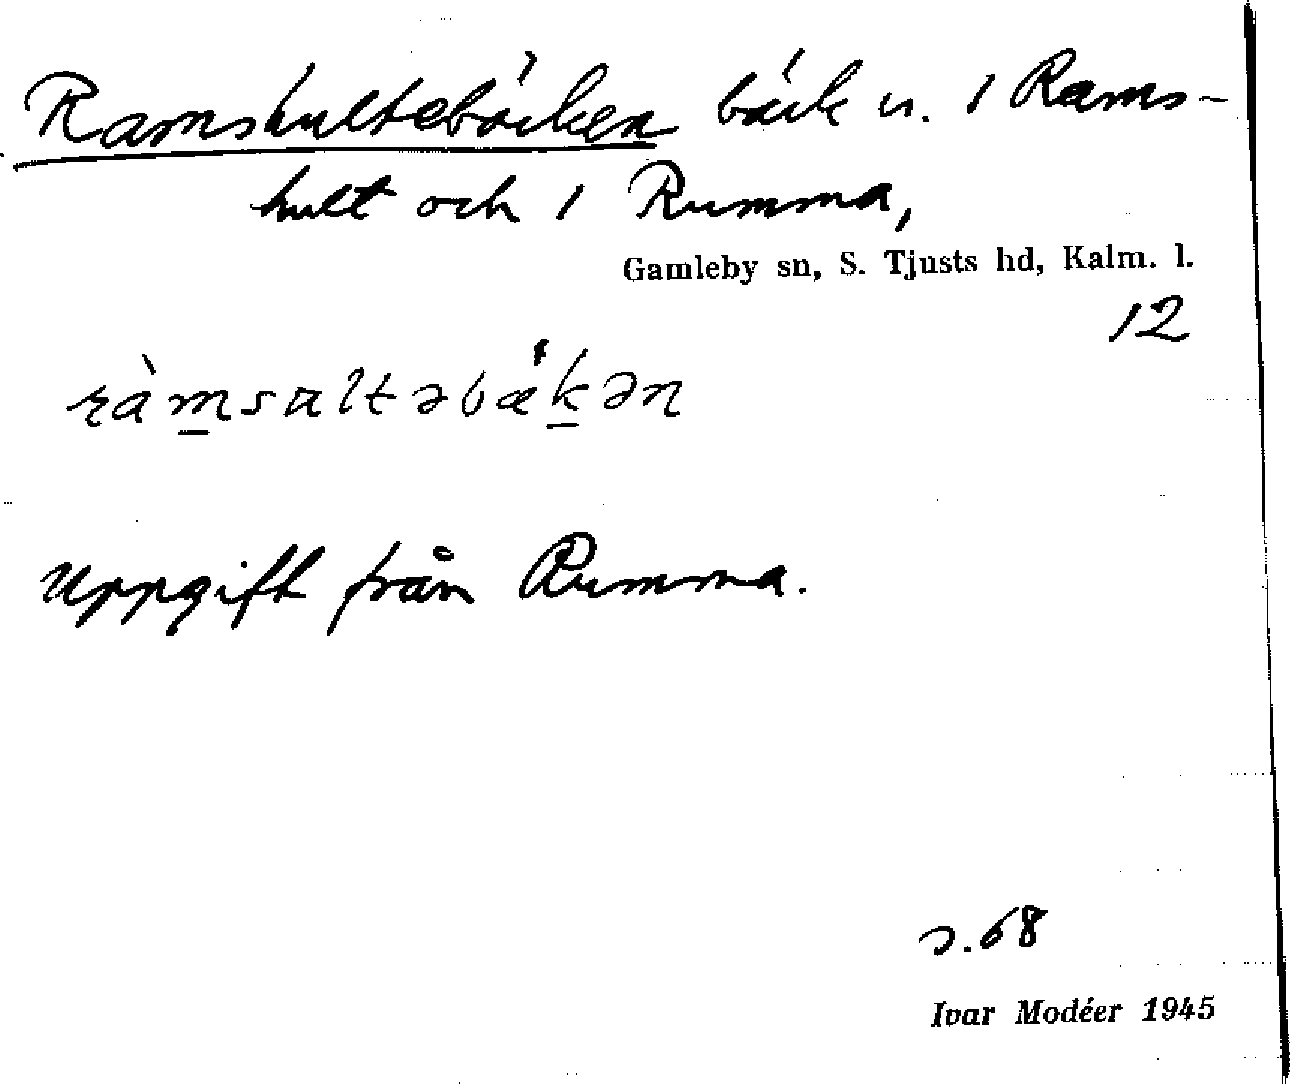 Ramshultebäcken bäck n. 1 Rams-
hult och 1 Rumma,
Gamleby sn, S. Tjusts hd, Kalm. l.
12
ràm̲sʌltəbǽk̲ən
Uppgift från Rumma.
s. 68
Ivar Modéer 1945